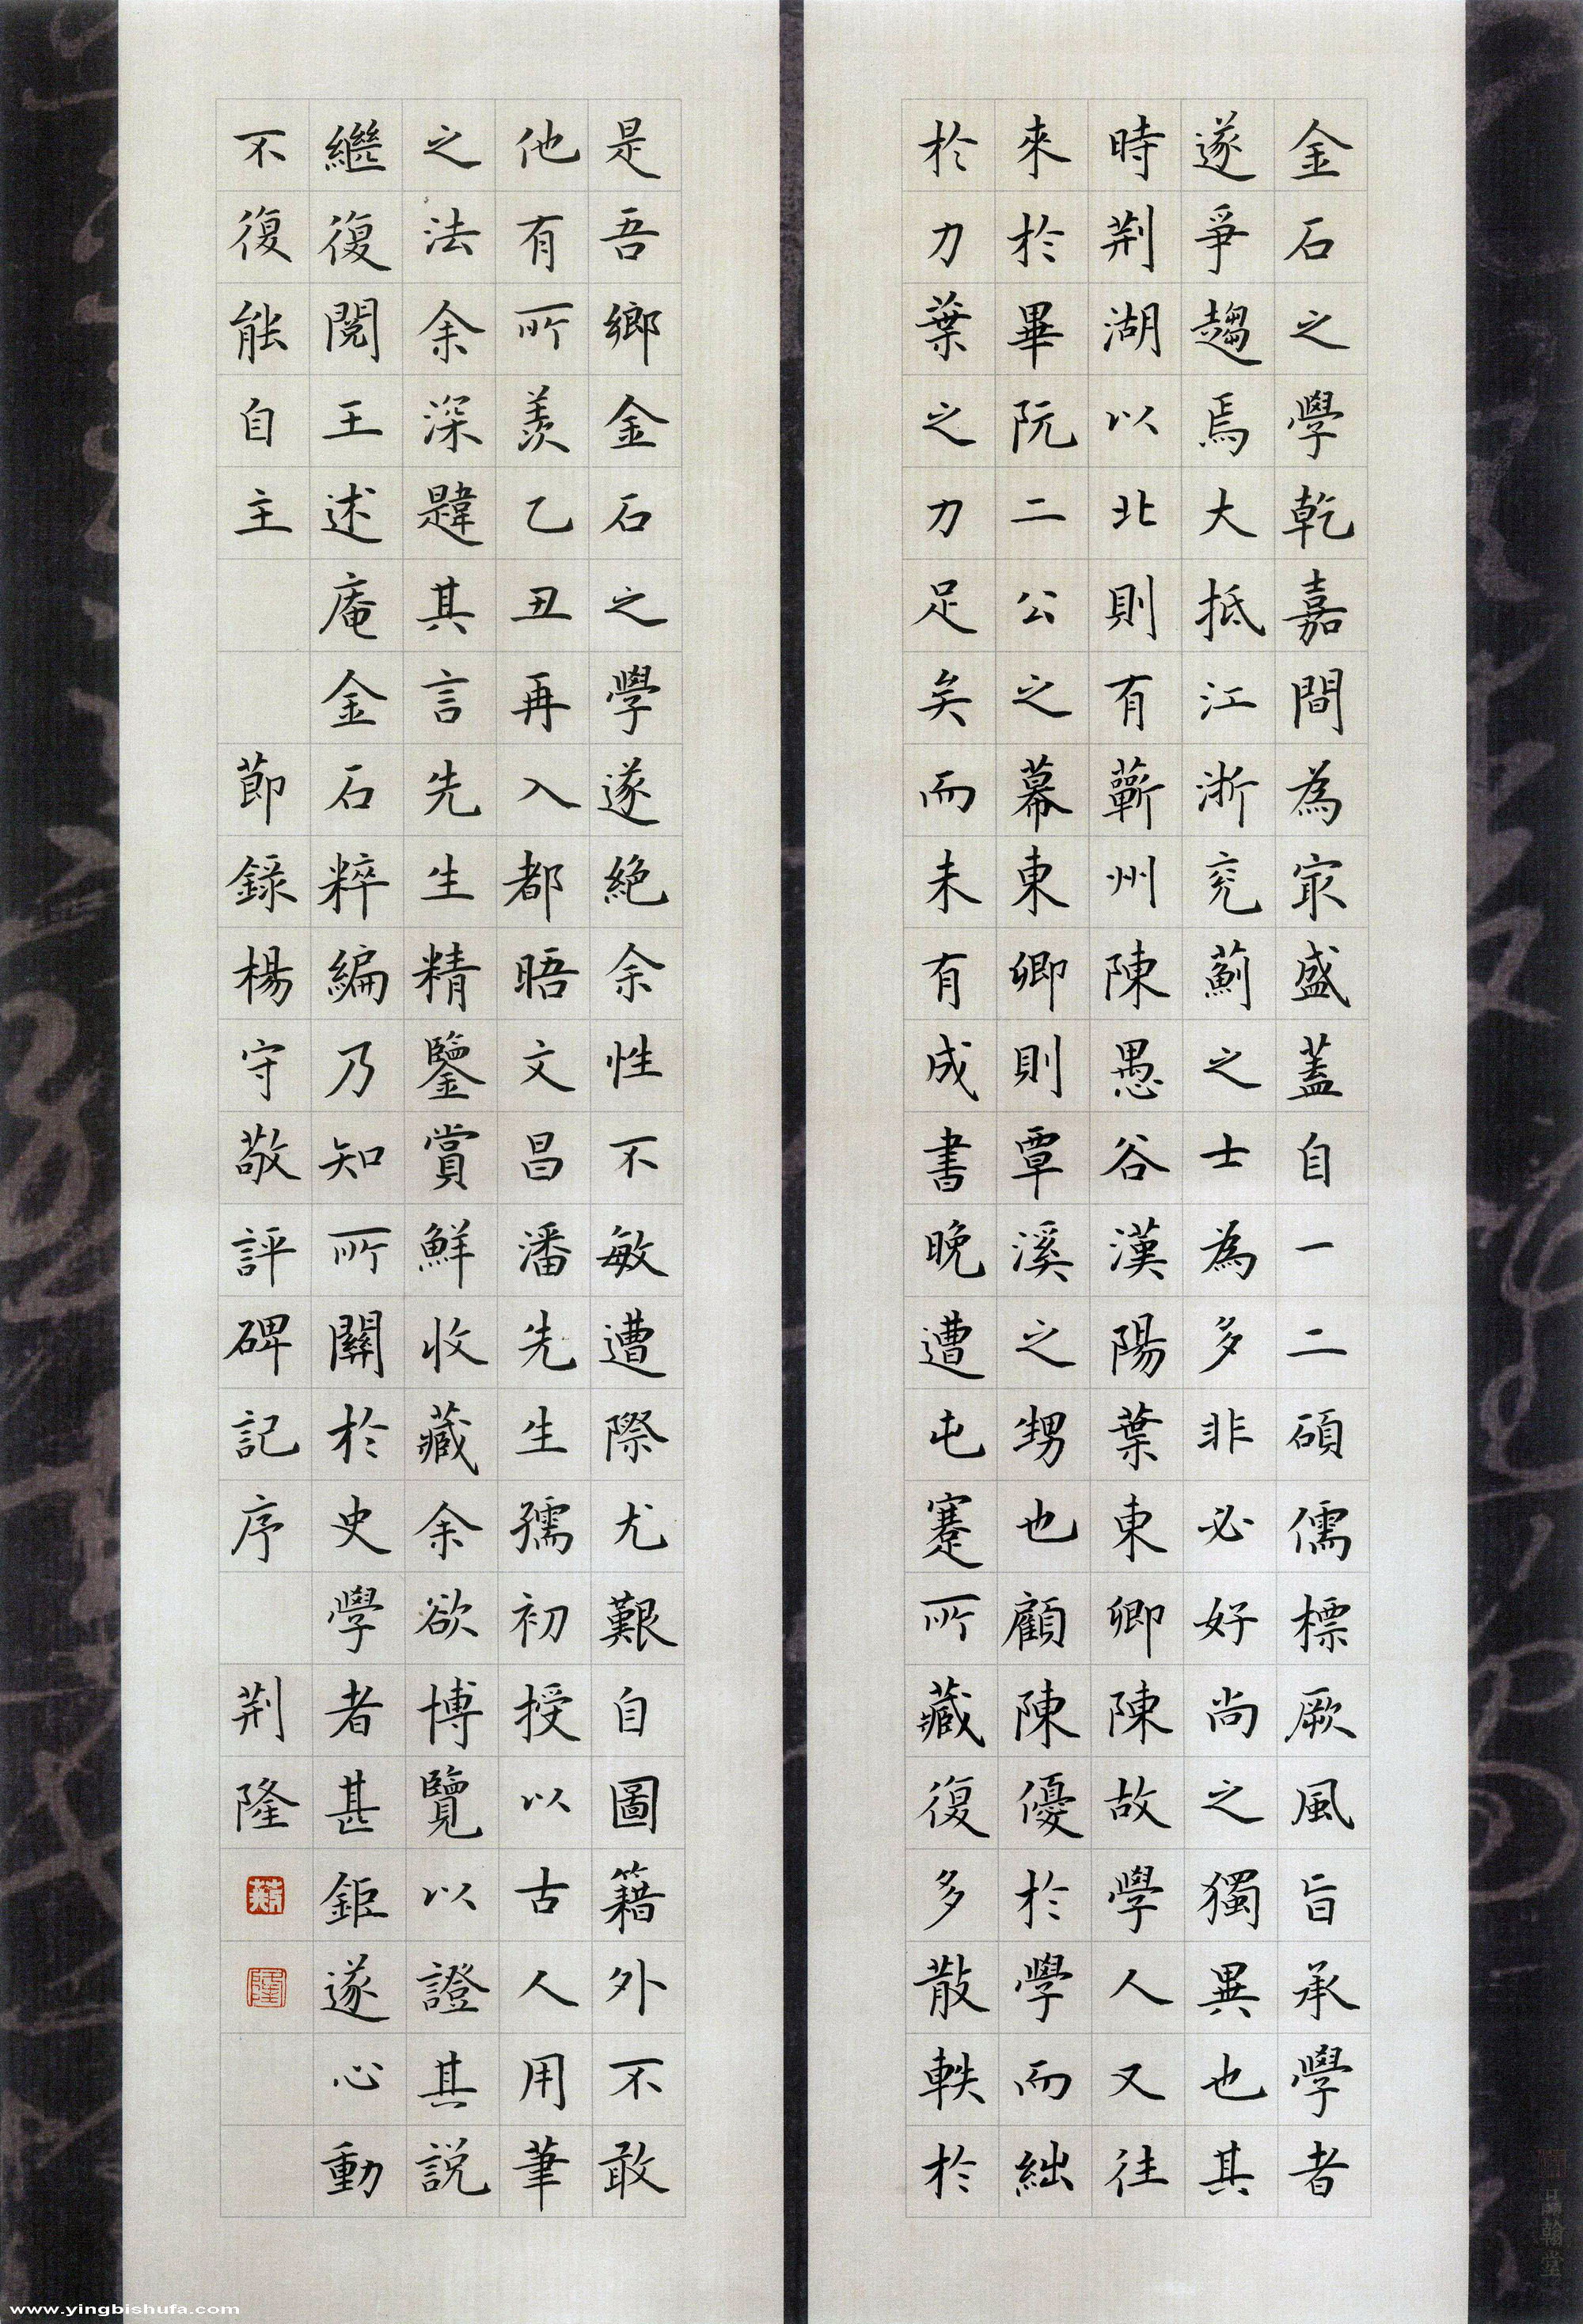 金石之學乾嘉間為冣盛蓋自一二碩儒標厥風旨承學者
遂爭趨焉大抵江浙兖薊之士為多非必好尚之獨異也其
時荆湖以北則有蘄州陳愚谷漢陽葉東卿陳故學人又往
來於畢阮二公之幕東卿則覃溪之甥也顧陳優於學而絀
於力葉之力足矣而未有成書晚遭屯蹇所藏復多散軼於
是吾鄉金石之學遂絶余性不敏遭際尤艱自圖籍外不敢
他有所羨乙丑再入都晤文昌潘先生孺初授以古人用筆
之法余深韙其言先生精鑒賞鮮收藏余欲博覽以證其説
繼復閲王述庵金石粹編乃知所關於史學者甚鉅遂心動
不復能自主 節錄楊守敬評碑記序 荆隆
www.yingbishufa.com